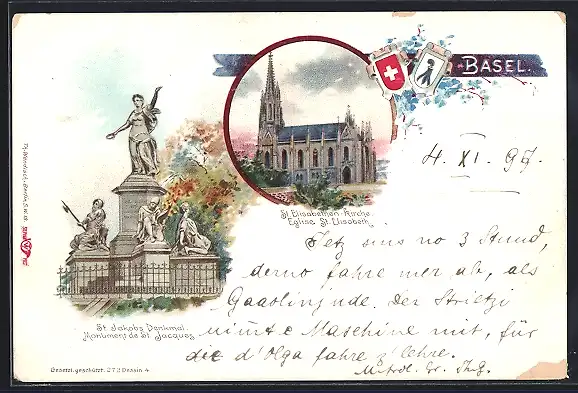 BASEL.
4. XI. 97.
St. Elisabethen-Kirche.
Eglise St. Elisabeth.
Jetz sins no 3 Stund,
derno fahre mer ab, als
Gaaslinjude. Der Strietzi
nimt e Maschine mit, für
die d'Olga fahre z'lehre.
St. Jakobs Denkmal.
Monument de St. Jacques.
Gesetzl. geschützt. 272 Dessin 4